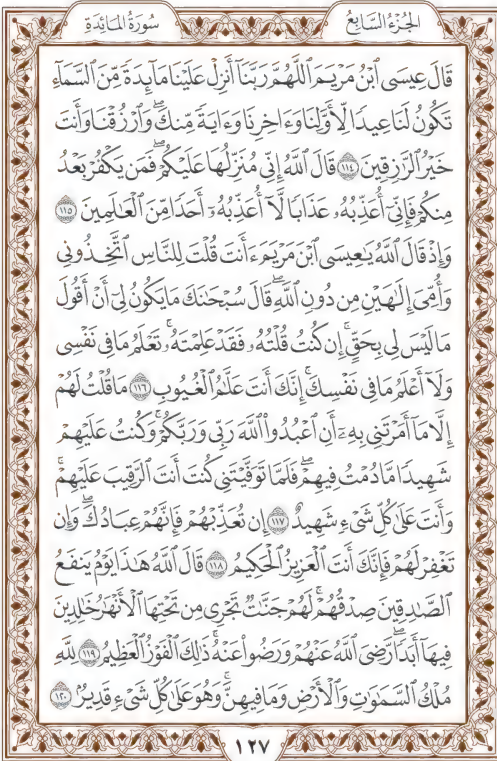 سُورَةُ المَائِدَةِ الجُزْءُ السَّابِعُ
قَالَ عِيسَى ٱبْنُ مَرْيَمَ ٱللَّهُمَّ رَبَّنَآ أَنزِلْ عَلَيْنَا مَآئِدَةً مِّنَ ٱلسَّمَآءِ
تَكُونُ لَنَا عِيدًا لِّأَوَّلِنَا وَءَاخِرِنَا وَءَايَةً مِّنكَۖ وَٱرْزُقْنَا وَأَنتَ
خَيْرُ ٱلرَّٰزِقِينَ ١١٤ قَالَ ٱللَّهُ إِنِّى مُنَزِّلُهَا عَلَيْكُمْۖ فَمَن يَكْفُرْ بَعْدُ
مِنكُمْ فَإِنِّىٓ أُعَذِّبُهُۥ عَذَابًا لَّآ أُعَذِّبُهُۥٓ أَحَدًا مِّنَ ٱلْعَٰلَمِينَ ١١٥
وَإِذْ قَالَ ٱللَّهُ يَٰعِيسَى ٱبْنَ مَرْيَمَ ءَأَنتَ قُلْتَ لِلنَّاسِ ٱتَّخِذُونِى
وَأُمِّىَ إِلَٰهَيْنِ مِن دُونِ ٱللَّهِۖ قَالَ سُبْحَٰنَكَ مَا يَكُونُ لِىٓ أَنْ أَقُولَ
مَا لَيْسَ لِى بِحَقٍّۚ إِن كُنتُ قُلْتُهُۥ فَقَدْ عَلِمْتَهُۥۚ تَعْلَمُ مَا فِى نَفْسِى
وَلَآ أَعْلَمُ مَا فِى نَفْسِكَۚ إِنَّكَ أَنتَ عَلَّٰمُ ٱلْغُيُوبِ ١١٦ مَا قُلْتُ لَهُمْ
إِلَّا مَآ أَمَرْتَنِى بِهِۦٓ أَنِ ٱعْبُدُوا۟ ٱللَّهَ رَبِّى وَرَبَّكُمْۚ وَكُنتُ عَلَيْهِمْ
شَهِيدًا مَّا دُمْتُ فِيهِمْۖ فَلَمَّا تَوَفَّيْتَنِى كُنتَ أَنتَ ٱلرَّقِيبَ عَلَيْهِمْۚ
وَأَنتَ عَلَىٰ كُلِّ شَىْءٍ شَهِيدٌ ١١٧ إِن تُعَذِّبْهُمْ فَإِنَّهُمْ عِبَادُكَۖ وَإِن
تَغْفِرْ لَهُمْ فَإِنَّكَ أَنتَ ٱلْعَزِيزُ ٱلْحَكِيمُ ١١٨ قَالَ ٱللَّهُ هَٰذَا يَوْمُ يَنفَعُ
ٱلصَّٰدِقِينَ صِدْقُهُمْۚ لَهُمْ جَنَّٰتٌ تَجْرِى مِن تَحْتِهَا ٱلْأَنْهَٰرُ خَٰلِدِينَ
فِيهَآ أَبَدًاۖ رَّضِىَ ٱللَّهُ عَنْهُمْ وَرَضُوا۟ عَنْهُۚ ذَٰلِكَ ٱلْفَوْزُ ٱلْعَظِيمُ ١١٩ لِلَّهِ
مُلْكُ ٱلسَّمَٰوَٰتِ وَٱلْأَرْضِ وَمَا فِيهِنَّۚ وَهُوَ عَلَىٰ كُلِّ شَىْءٍ قَدِيرٌۢ ١٢٠
١٢٧